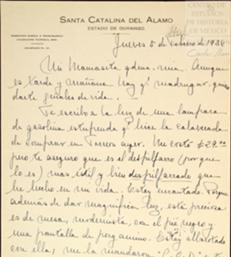 SANTA CATALINA DEL ALAMO
ESTADO DE DURANGO
Jueves 5 de 1928
Mi Mamasita adorada. Aunque
es tarde y mañana hay q' madrugar quiero
darte señales de vida.
Te escribo a la luz de una lámpara
de gasolina estupenda q' hice la calaverada
de comprar en Torreon ayer. Me costó $29.00
pero te aseguro que es el despilfarro (porque
lo es) mas útil y bien despilfarrado que
he hecho en mi vida. Estoy encantado porque
además de dar magnífica luz, está preciosa
es de mesa, modernista, con el pie negro y
una pantalla de pergamino. Estoy
ella, me la mandaron